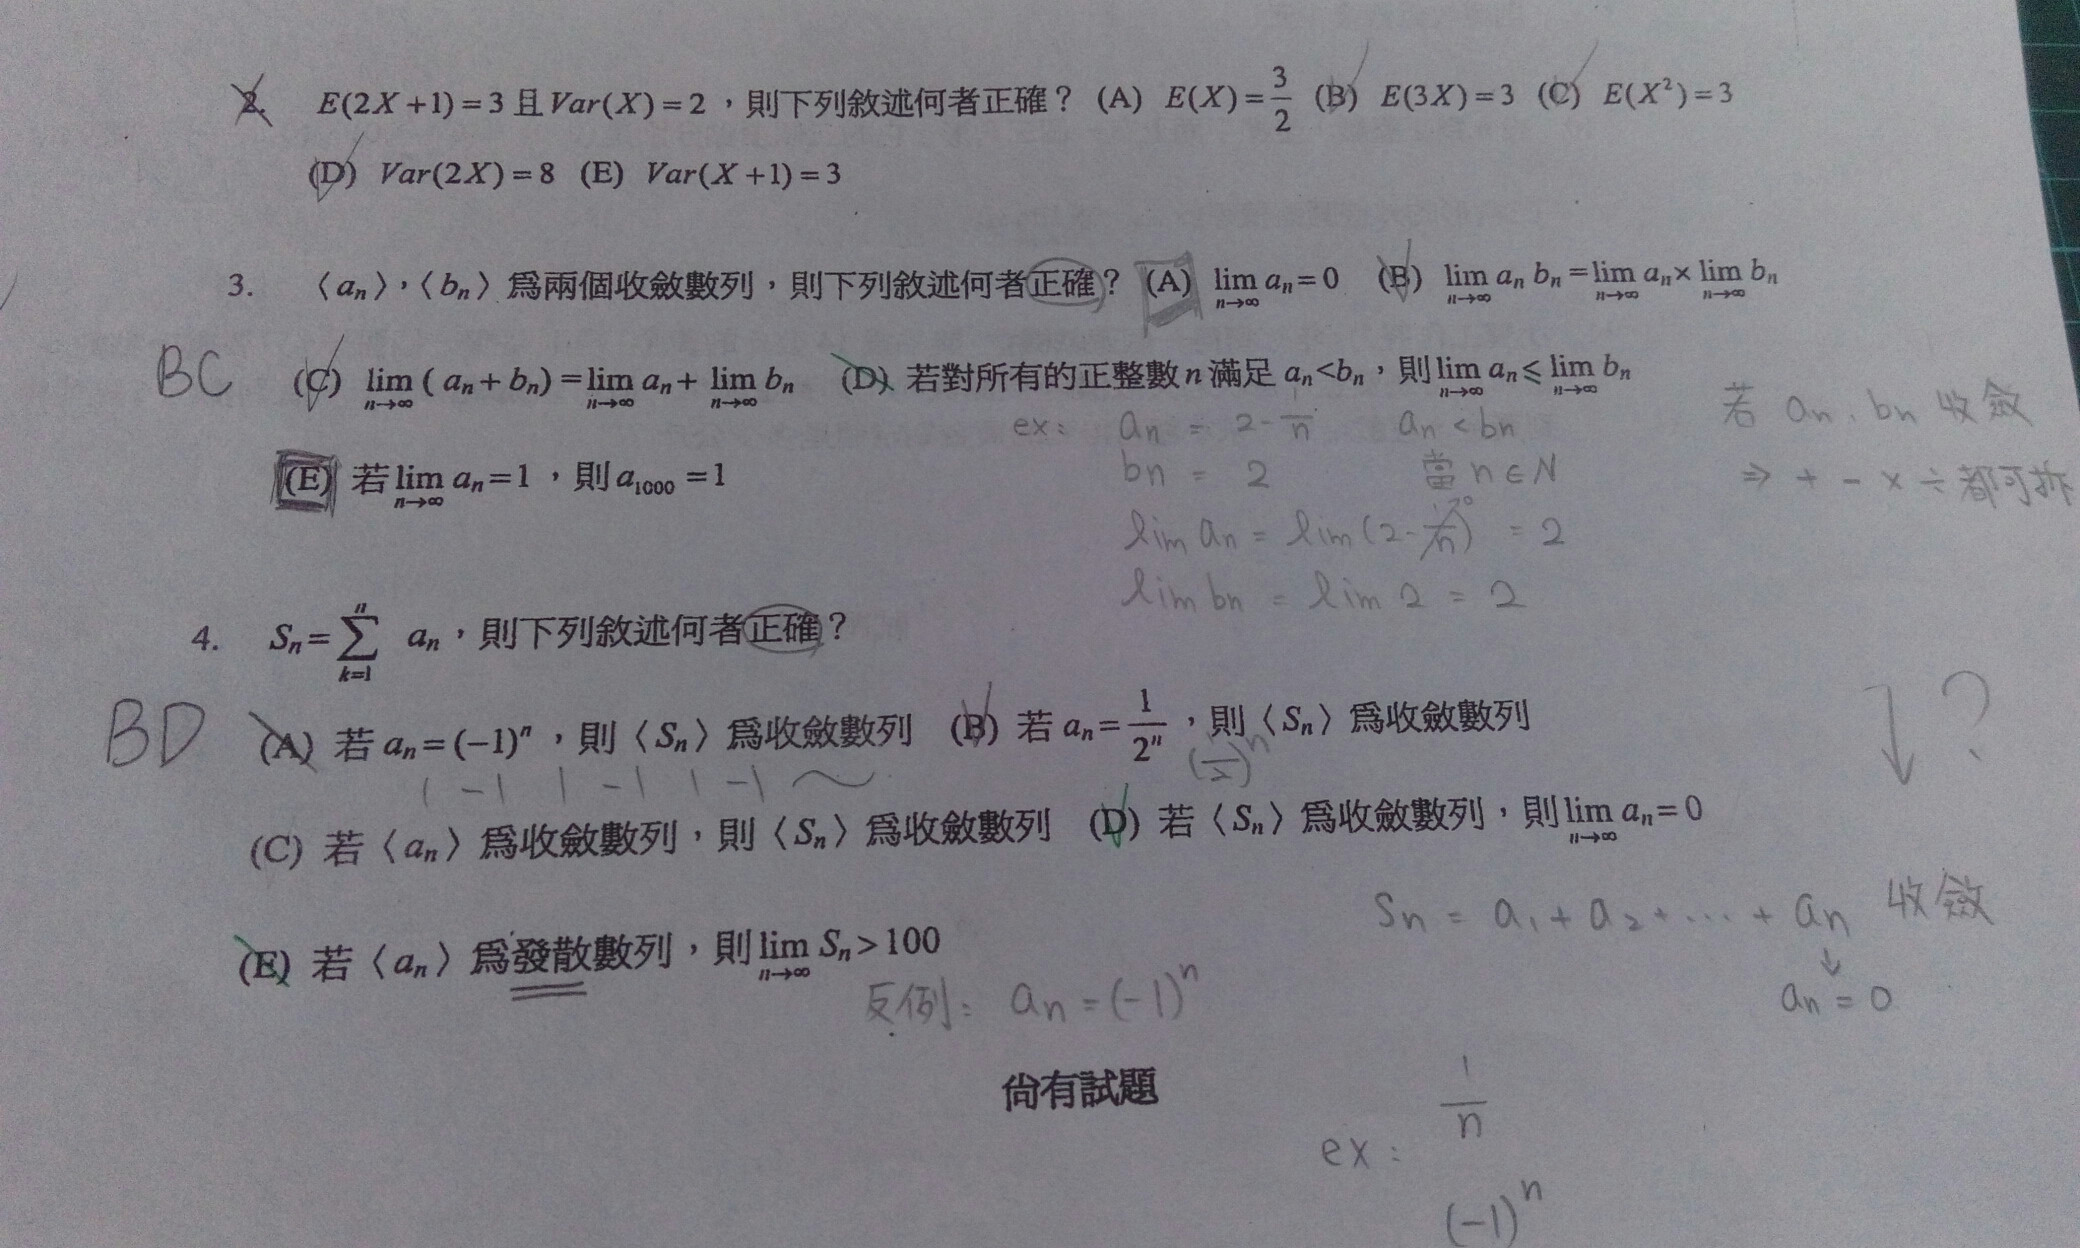 2. E(2X+1)=3 且 Var(X)=2，則下列敘述何者正確？ (A) E(X)=3/2 (B) E(3X)=3 (C) E(X²)=3
(D) Var(2X)=8 (E) Var(X+1)=3
3. 〈aₙ〉，〈bₙ〉為兩個收斂數列，則下列敘述何者正確？ (A) lim n→∞ aₙ=0 (B) lim n→∞ aₙ bₙ=lim n→∞ aₙ× lim n→∞ bₙ
BC (C) lim n→∞ (aₙ+bₙ)=lim n→∞ aₙ+ lim n→∞ bₙ (D) 若對所有的正整數n滿足 aₙ<bₙ，則 lim n→∞ aₙ⩽ lim n→∞ bₙ
ex: an = 2-1/n an<bn
若 an、bn 收斂
(E) 若 lim n→∞ aₙ=1，則 a₁₀₀₀=1
bn = 2 當 n∈N
⇒ + - × ÷ 都可拆
lim an = lim(2-1/n) = 2
lim bn = lim 2 = 2
4. Sₙ=∑ n k=1 aₙ，則下列敘述何者正確？
BD (A) 若 aₙ=(−1)ⁿ，則〈Sₙ〉為收斂數列 (B) 若 aₙ=1/2ⁿ，則〈Sₙ〉為收斂數列
↓?
1 -1 1 -1 1 -1 ～ (1/2)ⁿ
(C) 若〈aₙ〉為收斂數列，則〈Sₙ〉為收斂數列 (D) 若〈Sₙ〉為收斂數列，則 lim n→∞ aₙ=0
Sn = a₁+a₂+...+an 收斂
↓
an = 0
(E) 若〈aₙ〉為發散數列，則 lim n→∞ Sₙ>100
反例: an=(-1)ⁿ
尚有試題
ex: 1/n
(-1)ⁿ